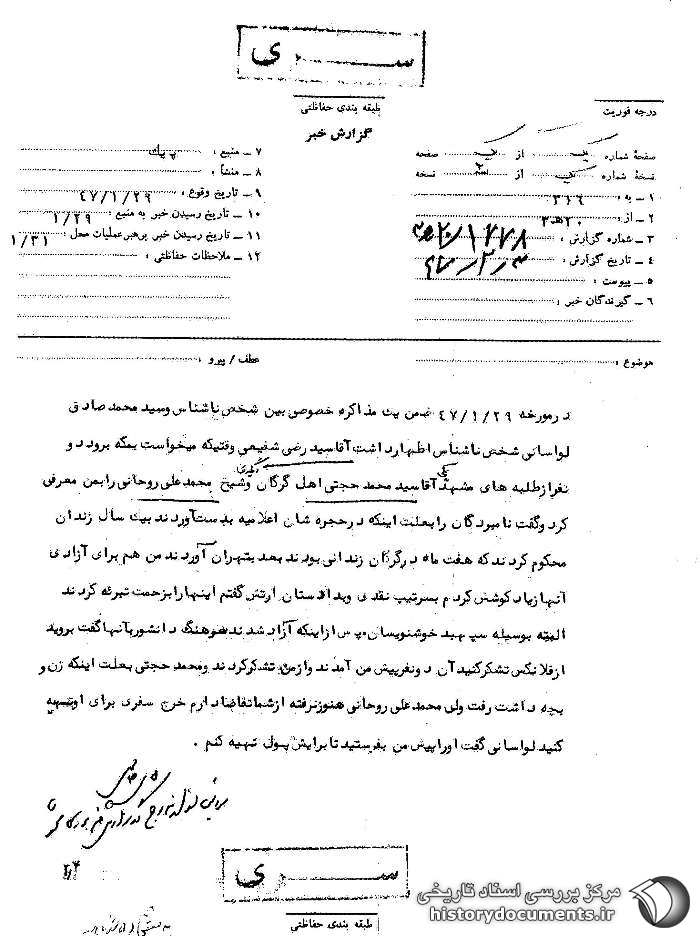 سری
طبقه بندی حفاظتی
درجه فوریت
گزارش خبر
صفحهٔ شماره یک از یک صفحه
نسخهٔ شماره یک از نسخه
۱ – به : ۳۱۶
۲ – از : ۲۰ هـ ۳
۳ – شماره گزارش :
۴ – تاریخ گزارش :
۵ – پیوست :
۶ – گیرندگان خبر :
۷ – منبع :
۸ – منشأ :
۹ – تاریخ وقوع : ۴۷/۱/۲۹
۱۰ – تاریخ رسیدن خبر به منبع : ۱/۲۹
۱۱ – تاریخ رسیدن خبر برهبرعملیات محل : ۱/۳۱
۱۲ – ملاحظات حفاظتی :
موضوع :
عطف / پیرو :
درمورخه ۴۷/۱/۲۹ ضمن یک مذاکره خصوصی بین شخص ناشناس وسید محمد صادق
لواسانی شخص ناشناس اظهارداشت آقاسید رضی شفیعی وقتیکه میخواست بمکه برود دو
نفرازطلبه های مشهد یکی آقاسید محمد حجتی اهل گرگان و دیگری شیخ محمدعلی روحانی رابمن معرفی
کرد وگفت نامبردگان رابعلت اینکه درحجره شان اعلامیه بدست آوردند بیک سال زندان
محکوم کردند که هفت ماه درگرگان زندانی بودند بعد بتهران آوردند من هم برای آزادی
آنهازیاد کوشش کردم بسرتیپ نقدی وبدادستان ارتش گفتم اینها رابزحمت تبرئه کردند
البته بوسیله سپهبد خوشنویسان. پس ازاینکه آزاد شدند سرهنگ دانشور بآنها گفت بروید
ازفلانکس تشکرکنید آن دونفرپیش من آمدند وازمن تشکرکردند ومحمد حجتی بعلت اینکه زن و
بچه داشت رفت ولی محمدعلی روحانی هنوزنرفته ازشماتقاضا دارم خرج سفری برای اوتهیه
کنید لواسانی گفت اوراپیش من بفرستید تابرایش پول تهیه کنم .
سری
طبقه بندی حفاظتی
مرکز بررسی اسناد تاریخی
historydocuments.ir